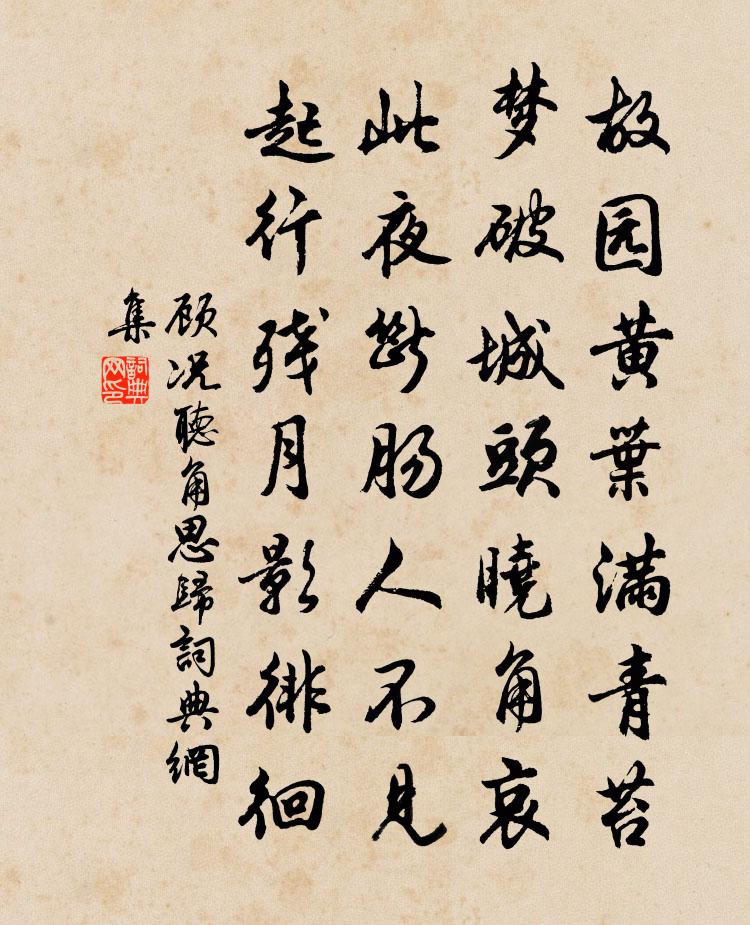 故园黄葉满青苔
梦破城頭曉角哀
此夜断肠人不見
起行残月影徘徊
顾况聽角思歸詞典網
集
詞典网印